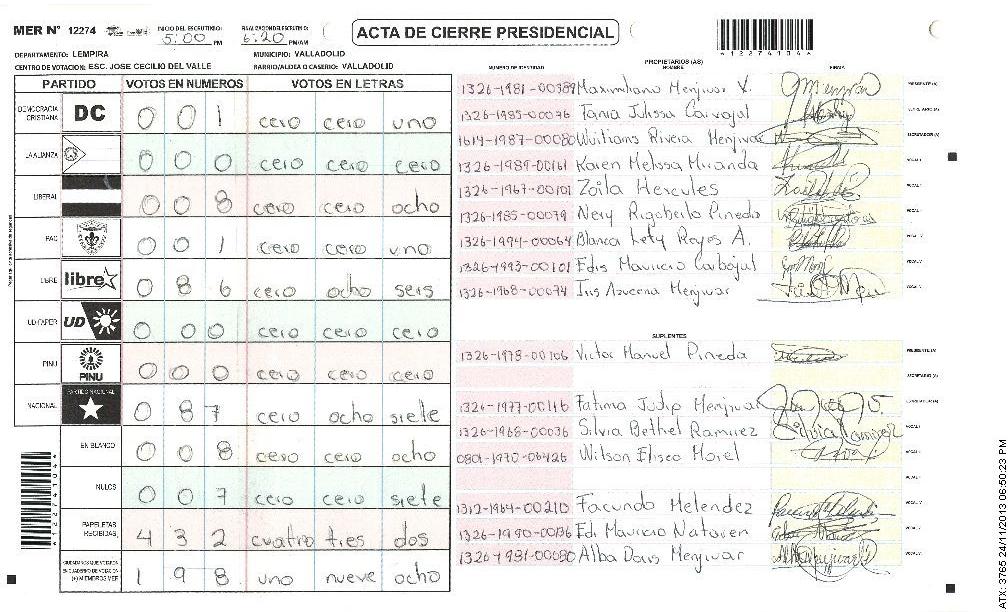 MER N° 12274
INICIO DEL ESCRUTINIO: 5:00 PM
FINALIZACION DEL ESCRUTINIO: 6:20 PM/AM
ACTA DE CIERRE PRESIDENCIAL
*12274104*
DEPARTAMENTO: LEMPIRA MUNICIPIO: VALLADOLID
CENTRO DE VOTACION: ESC. JOSE CECILIO DEL VALLE BARRIO/ALDEA O CASERIO: VALLADOLID
PARTIDO VOTOS EN NUMEROS VOTOS EN LETRAS
DEMOCRACIA CRISTIANA DC 0 0 1 cero cero uno
LA ALIANZA 0 0 0 cero cero cero
LIBERAL 0 0 8 cero cero ocho
PAC 0 0 1 cero cero uno
LIBRE libre 0 8 6 cero ocho seis
UD-FAPER UD 0 0 0 cero cero cero
PINU PINU 0 0 0 cero cero cero
NACIONAL PARTIDO NACIONAL 0 8 7 cero ocho siete
EN BLANCO 0 0 8 cero cero ocho
NULOS 0 0 7 cero cero siete
PAPELETAS RECIBIDAS 4 3 2 cuatro tres dos
CIUDADANOS QUE VOTARON EN CUADERNO DE VOTACION (+) MIEMBROS MER 1 9 8 uno nueve ocho
PROPIETARIOS (AS)
NUMERO DE IDENTIDAD NOMBRE FIRMA
1326-1981-00389 Maximiliano Menjivar V. PRESIDENTE (A)
1326-1985-00076 Tania Julissa Carvajal SECRETARIO (A)
1614-1987-00080 Williams Rivera Menjivar ESCRUTADOR (A)
1326-1989-00161 Karen Melissa Miranda VOCAL I
1326-1967-00101 Zoila Hercules
1326-1985-00079 Nery Rigoberto Pineda
1326-1994-00064 Blanca Lety Reyes A.
1326-1993-00101 Edis Mauricio Carbajal
1326-1968-00074 Iris Azucena Menjivar
SUPLENTES
1326-1978-00106 Victor Manuel Pineda PRESIDENTE (A)
SECRETARIO (A)
1326-1977-00116 Fatima Judip Menjivar ESCRUTADOR (A)
1326-1968-00036 Silvia Bethel Ramirez VOCAL I
0801-1970-06426 Wilson Eliseo Morel
1312-1964-00210 Facundo Melendez
1326-1990-00136 Edi Mauricio Nataren
1326-1981-00080 Alba Doris Menjivar
ATX: 3765 24/11/2013 06:50:23 PM